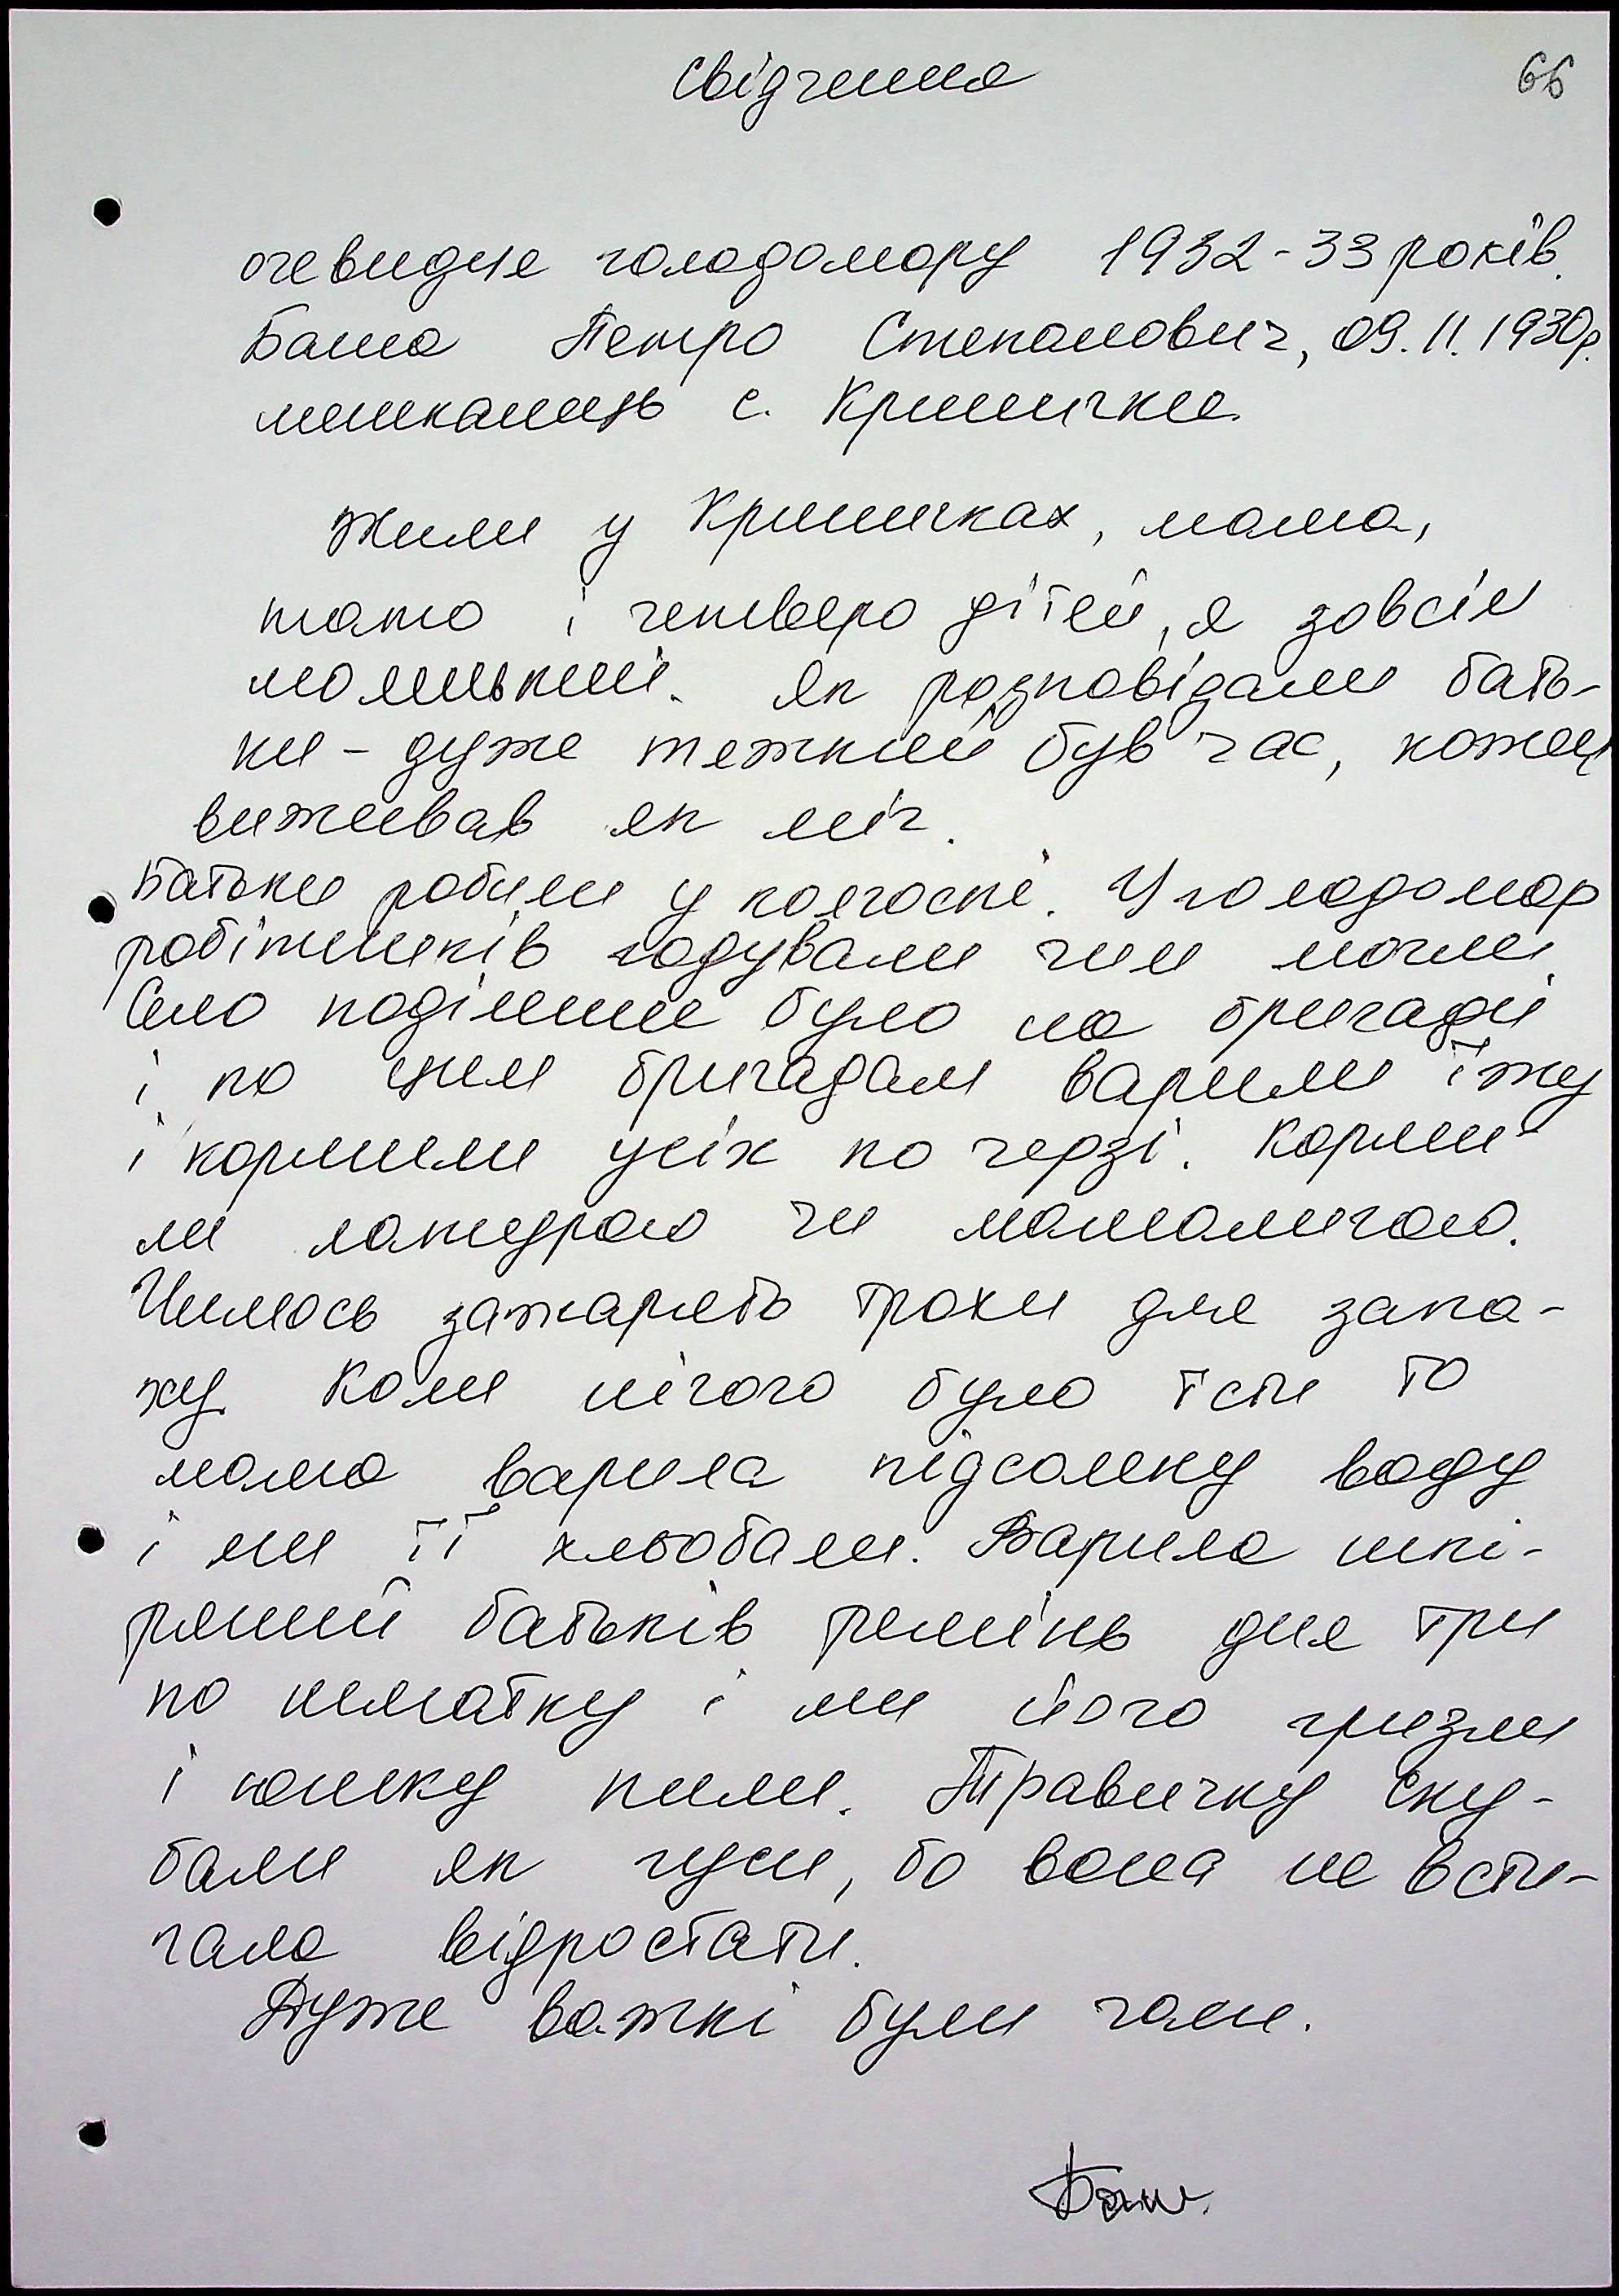 Свідчення
66
очевидця голодомору 1932-33 років.
Бана Петро Степанович, 09.11.1930р.
мешканець с. Кринички.
Жили у Криничках, мама,
тато і четверо дітей, я зовсім
маленький. Як розповідали бать-
ки - дуже тяжкий був час, кожен
виживав як міг.
Батьки робили у колгоспі. У голодомор
робітників годували чим могли.
Село поділине було на бригади
і по цим бригадам варили їжу
і кормили усіх по черзі. Корми-
ли затірою чи мамалигою.
Чимось зажарять трохи для запа-
ху. Коли нічого було їсти то
мама варила підсолену воду
і ми її хльобали. Варила шкі-
ряний батьків ремінь дня три
по шматку і ми його гризли
і юшку пили. Травичку ску-
бали як гуси, бо вона не всти-
гала відростати.
Дуже важкі були часи.